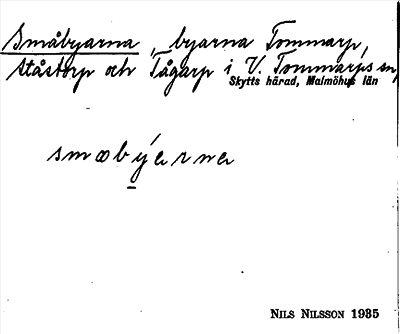 Småbyarna, byarna Tommarp,
Ståstorp och Tågarp i V. Tommarps sn,
Skytts härad, Malmöhus län
smobýerna
NILS NILSSON 1935